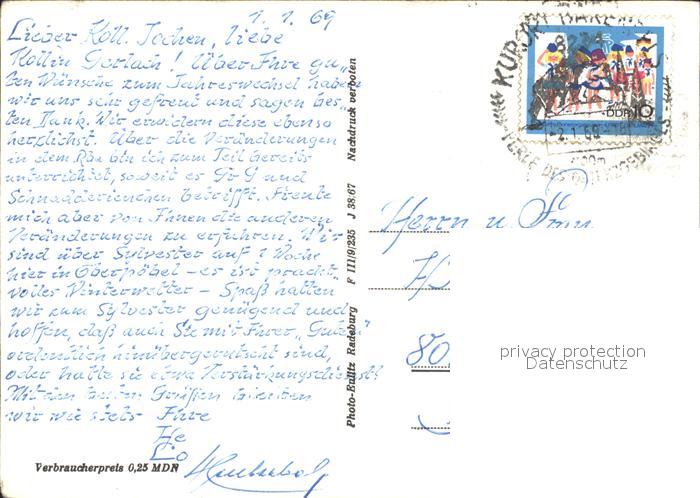 1.1.69
Lieber Koll. Jochen, liebe
Kollin Gerlach! Über Ihre gu-
ten Wünsche zum Jahreswechsel haben
wir uns sehr gefreut und sagen bes-
ten Dank. Wir erwidern diese ebenso
herzlichst. Über die Veränderungen
in dem Rba bin ich zum Teil bereits
unterrichtet, soweit es Gr G und
betrifft. Freute
mich aber von Ihnen die anderen
Veränderungen zu erfahren. Wir
sind über Sylvester auf 1 Woche
hier in Oberpöbel - es ist pracht-
volles Winterwetter - Spaß hatten
wir zum Sylvester genügend und
hoffen, daß auch Sie mit Ihrer "Guten"
ordentlich hinübergerutscht sind,
oder hatte sie etwa Verstärkungsdienst?
Mit den besten Grüßen bleiben
wir wie stets Ihre
Verbraucherpreis 0,25 MDN
Photo-Bulitz Radeburg F III/9/235 J 38/67 Nachdruck verboten
KURORT BÄRENFELS
8231
-2.1.69
PERLE DES OSTERZGEBIRGES
DDR 10
Herrn u. Frau
80
privacy protection
Datenschutz